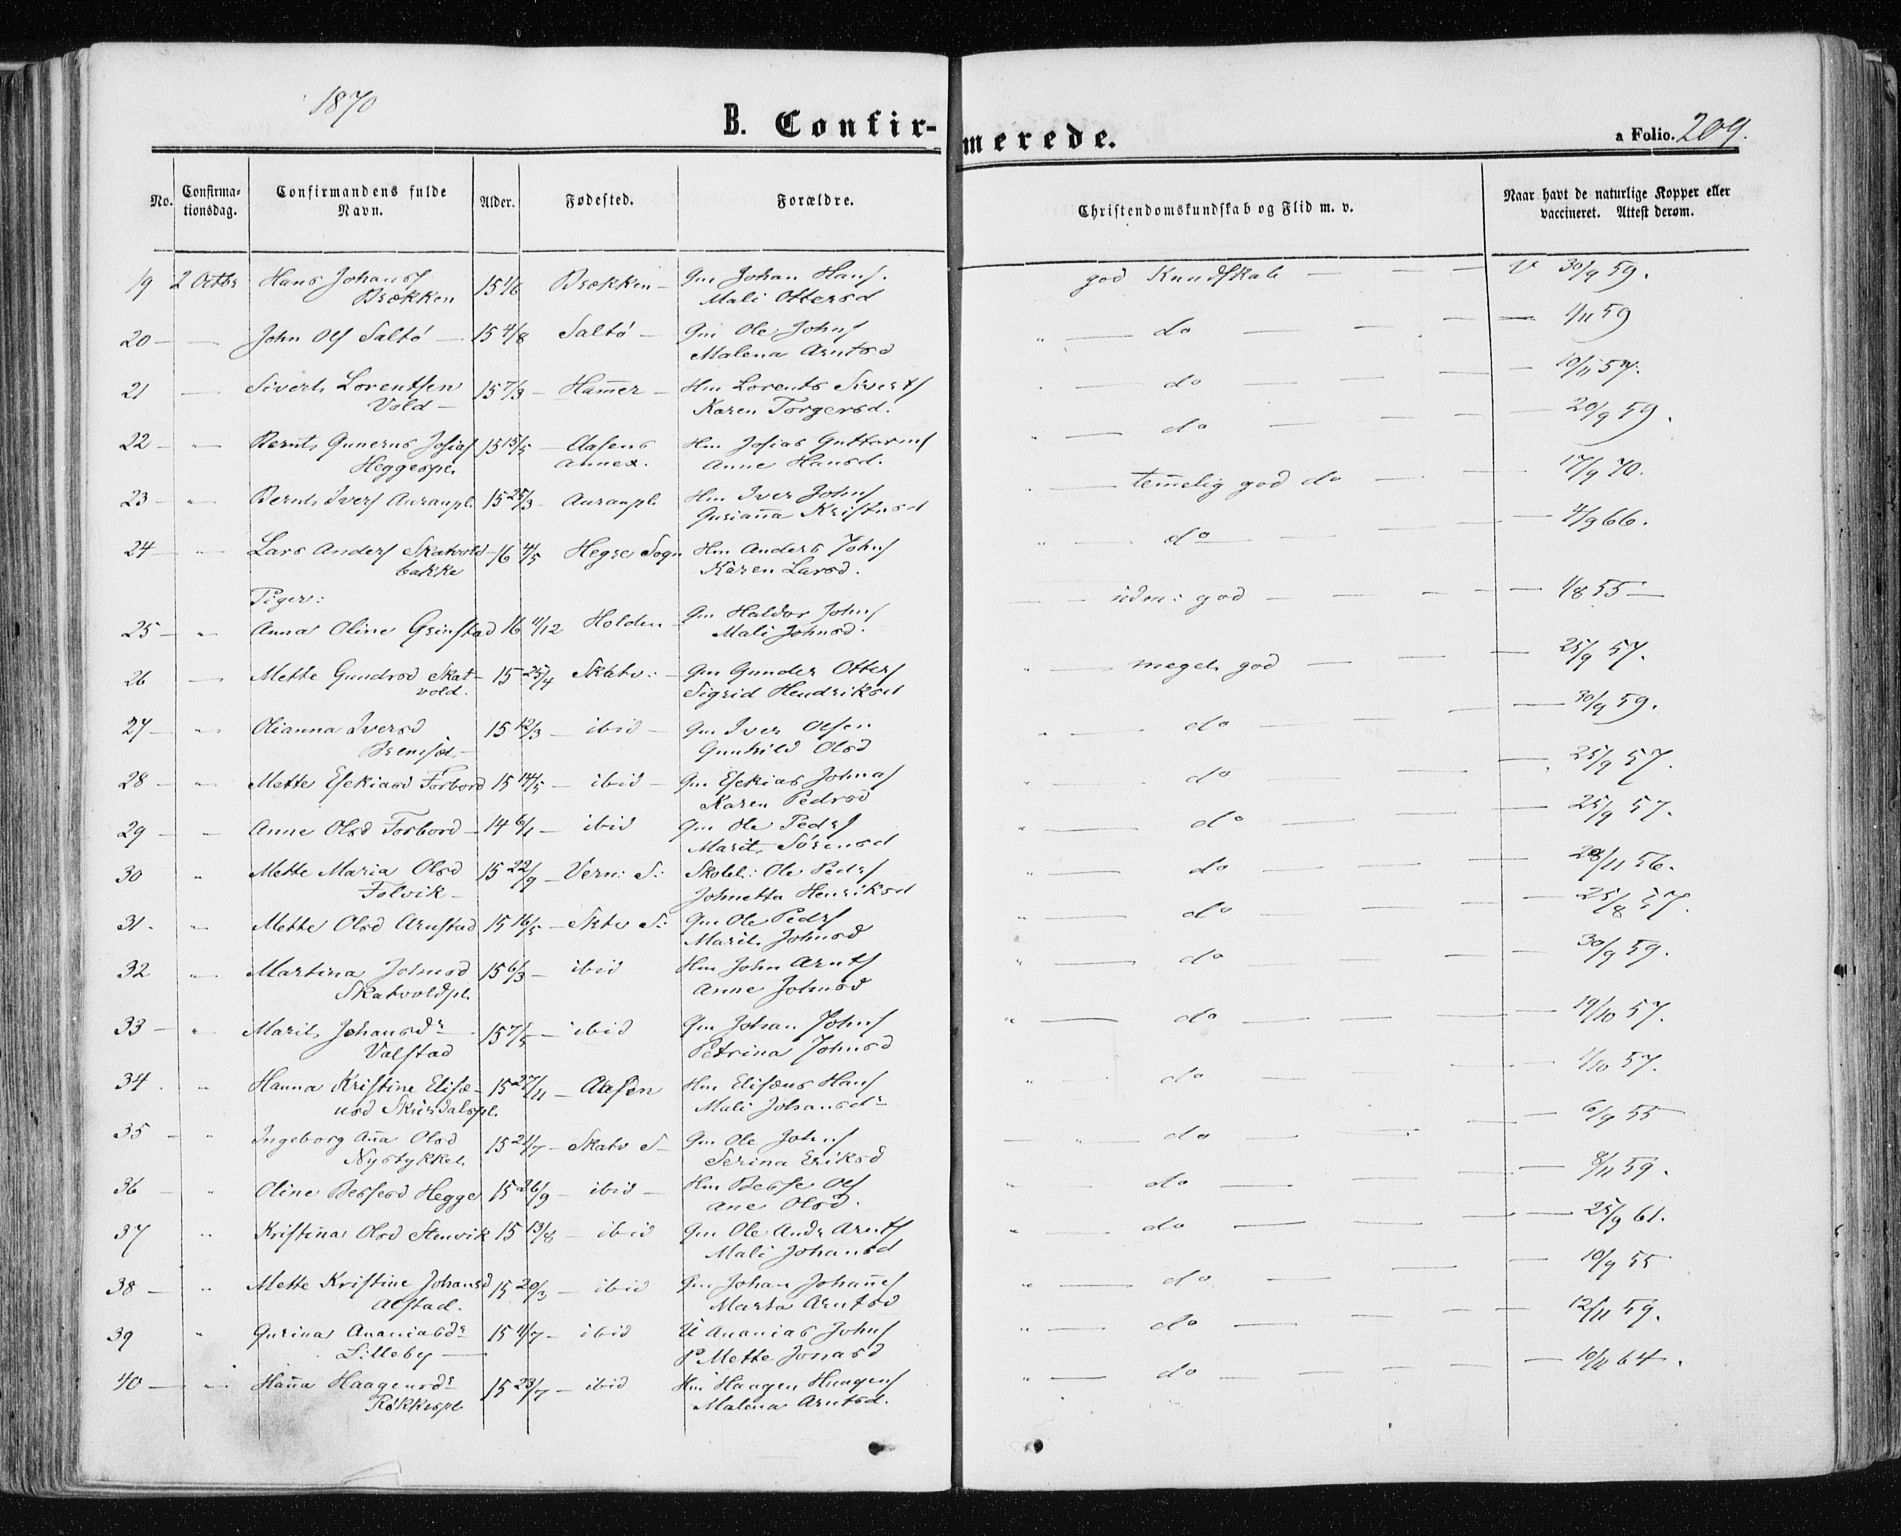 1870
B. Confir-
merede.
a Folio. 209.
No.
Confirma-
tionsdag.
Confirmandens fulde
Navn.
Alder.
Fødested.
Forældre.
Christendomskundskab og Flid m. v.
Naar havt de naturlige Kopper eller
vaccineret. Attest derom.
19 2 Octbr Hans Johans 15 1/6 Brækken - Gm Johan Hans. god Kundskab - - - v 30/9 59.
Brækken Mali Ottersd
20 - - John Ols Saltø - 15 4/8 Saltø - Gm Ole Johns " - do - - - - 4/11 59
Malena Arntsd
21 - Sivert Lorentsen 15 7/3 - Hamer - Hm Lorents Siverts - do - - - 10/11 57.
Vold - Karen Torgersd.
22 - " Bernt Gunerus Josias 15 15/5 - Aasens Hm Josias Guttorms " - do - - - 20/9 59.
Heggespl. Annex. Anne Hansd.
23 - " Bernt Ivers Auranpl. 15 25/3 - Auranpl. Hm Iver Johns - temelig god do - - - 17/9 70.
Gurianna Kristnsd
24 - " Lars Anders Skatvold- 16 4/5 Hegre Sogn Hm Anders Johns " - do - - - 4/9 66.
bakke Karen Larsd.
Piger:
25 - " Anna Oline Grinstad 16 11/12 Holden - Gm Haldor Johns - uden: god - - - - 1/8 55 -
Mali Johnsd.
26 - Mette Gundrsd Skat- 15 25/4 Skatv: - Gm Gunder Otters " - meget god - - - 25/9 57.
vold. Sigrid Hendriksd
27 - " Olianna Iversd 15 12/3 - ibid - Gm Iver Olsen " - do - - - 30/9 59.
Gunhild Olsd
28 - " Mette Esekiasd Forbord 15 14/5 - ibid - Gm Esekias Johnas " - do - - - 25/9 57.
Karen Pedrsd
29 - " Anne Olsd Forbord - 14 6/1 - ibid - Gm Ole Peders " - do - - - 25/9 57.
Marit Sørensd
30 " Mette Maria Olsd 15 22/9 - Vern: S: Skolel.: Ole Peders " - do - - - 28/11 56.
Folvik - Johnetta Henriksd
31. " Mette Olsd Arnstad 15 16/5 - Sktv S: Gm Ole Peders " - do - - - 25/8 57.
Marit Johnsd
32 " Martina Johnsd 15 6/3 - ibid Hm John Arnts " - do - - - 30/9 59.
Skatvoldpl. Anne Johnsd
33 - " Marit Johansdr 15 7/5 - ibid Gm Johan Johns " - do - - - 19/10 57.
Valstad Petrina Johnsd
34 . " Hanna Kristine Elisæ- 15 27/11 - Aasen Hm Elisæus Hans " - do - - - 1/10 57.
usd Skursdalspl. Mali Johansdr
35 - " Ingeborg Aña Olsd 15 21/7 - Skatv S - Gm Ole Johns - " - do - - - 6/9 55
Nystykket Serina Eriksd
36 - " Oline Berserd Hegge 15 26/9 - ibid - Hm Berse Ols " - do - - - 8/11 59.
Ane Olsd.
37 " Kristina Olsd Stenvik 15 13/8 - ibid Gm Ole Andr Arnts " - do - - - 25/9 61.
Mali Johansd
38 - " Mette Kristine Johansd 15 20/3 - ibid Gm Johan Johannes " - do - - - 10/9 55
Alstad. Marta Arntsd
39 " Gurina Ananiasdr 15 4/7 - ibid U Ananias Johns " - do - - - 12/11 59.
Lilleby - P Mette Jonasd
40 - " Hanna Haagensdr 15 23/7 - ibid Hm Haagen Haagens " - do - - - 10/11 64.
Røkkespl. Malena Arntsd.